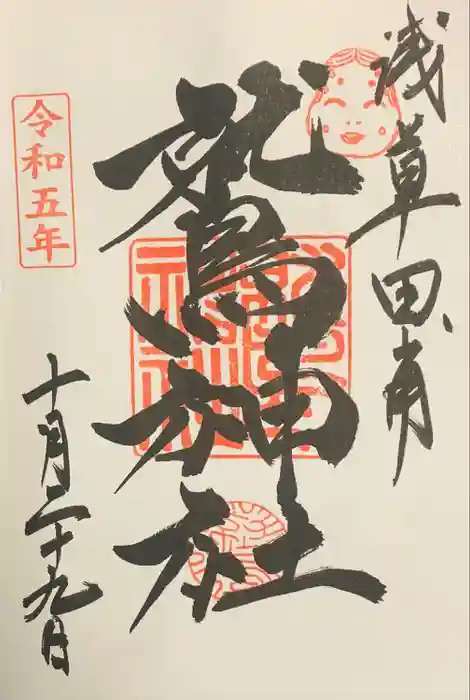 浅草田甫
鷲神社
令和五年
十月二十九日